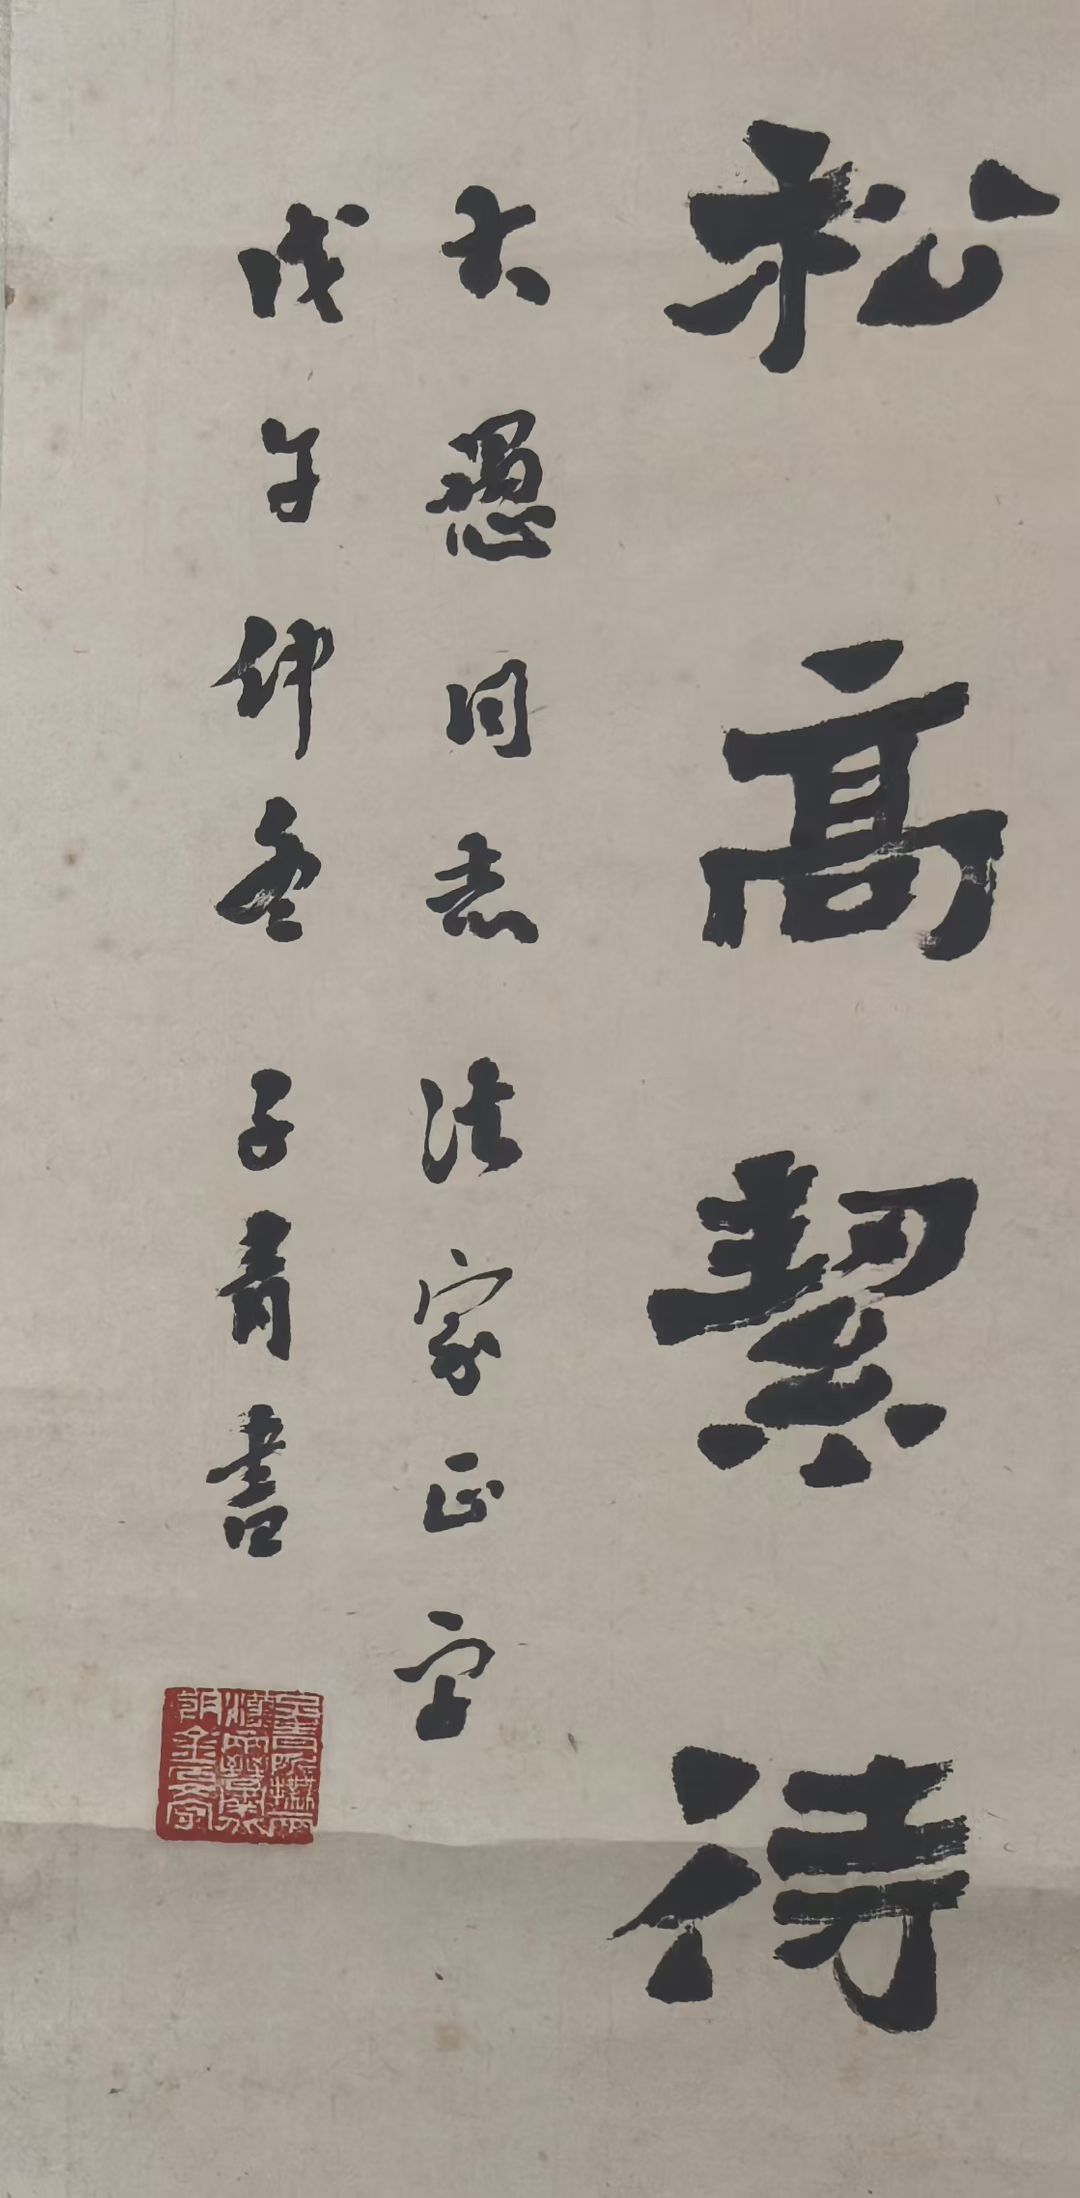 松高絜待
大愚同志法家正字
戊午仲冬子青書